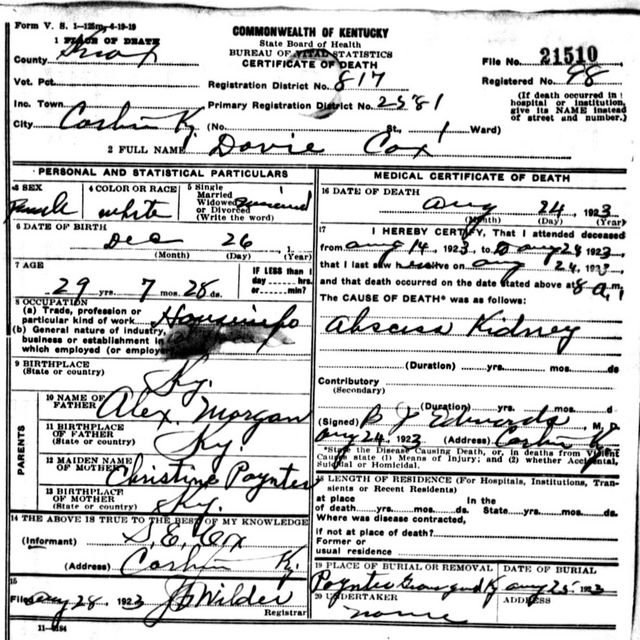 Form V. S. 1—125m—6-19-19
COMMONWEALTH OF KENTUCKY
State Board of Health
BUREAU OF VITAL STATISTICS
CERTIFICATE OF DEATH
1 PLACE OF DEATH
County Knox
File No. 21510
Vot. Pct.
Registration District No. 817
Registered No. 98
Inc. Town
Primary Registration District No. 2581
(If death occurred in
hospital or institution,
give its NAME instead
of street and number.)
City Corbin Ky. (No. St., Ward)
2 FULL NAME Dovie Cox
PERSONAL AND STATISTICAL PARTICULARS
3 SEX
Female
4 COLOR OR RACE
white
5 Single
Married
Widowed
or Divorced
(Write the word)
6 DATE OF BIRTH
Dec 26 1
(Month) (Day) (Year)
7 AGE
29 yrs. 7 mos. 28 ds.
IF LESS than 1
day hrs.
or min.?
8 OCCUPATION
(a) Trade, profession or
particular kind of work
(b) General nature of industry,
business or establishment in
which employed (or employer
9 BIRTHPLACE
(State or country) Ky.
PARENTS
10 NAME OF
FATHER Alex. Morgan
11 BIRTHPLACE
OF FATHER
(State or country) Ky.
12 MAIDEN NAME
OF MOTHER Christine Poynter
13 BIRTHPLACE
OF MOTHER
(State or country) Ky.
14 THE ABOVE IS TRUE TO THE BEST OF MY KNOWLEDGE
(Informant) S. E. Cox
(Address) Corbin Ky.
15
Filed Aug 28, 1923 Wilder
Registrar
MEDICAL CERTIFICATE OF DEATH
16 DATE OF DEATH
Aug 24, 1923
(Month) (Day) (Year)
17 I HEREBY CERTIFY, That I attended deceased
from Aug 14, 1923, to Aug 24 1923,
that I last saw h alive on Aug 24, 1923,
and that death occurred on the date stated above at 8 a. m.
The CAUSE OF DEATH* was as follows:
Abscess Kidney
(Duration) yrs. mos. ds
Contributory
(Secondary)
(Duration) yrs. mos. d
(Signed) B J Edwards, M. D
Aug 24, 1923 (Address) Corbin Ky
*State the Disease Causing Death, or, in deaths from Violent
Causes state (1) Means of Injury; and (2) whether Accidental,
Suicidal or Homicidal.
18 LENGTH OF RESIDENCE (For Hospitals, Institutions, Tran-
sients or Recent Residents)
at place In the
of death yrs. mos. ds. State yrs. mos. ds.
Where was disease contracted,
if not at place of death?
Former or
usual residence
19 PLACE OF BURIAL OR REMOVAL
Poynter Graveyard Ky
DATE OF BURIAL
Aug 25, 1923
20 UNDERTAKER
none
ADDRESS